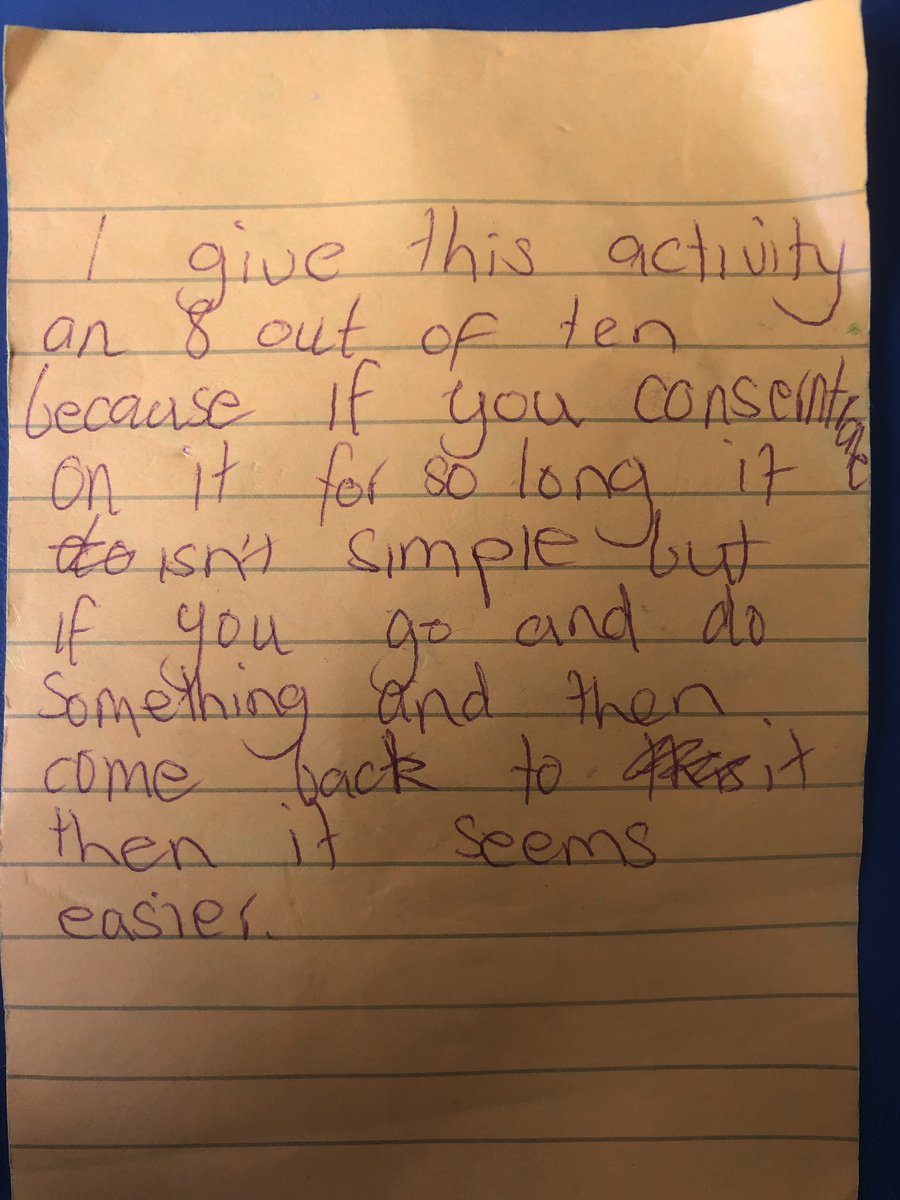 I give this activity
an 8 out of ten
because if you consentrate
on it for so long it
isn't simple but
if you go and do
something and then
come back to it
then it seems
easier.